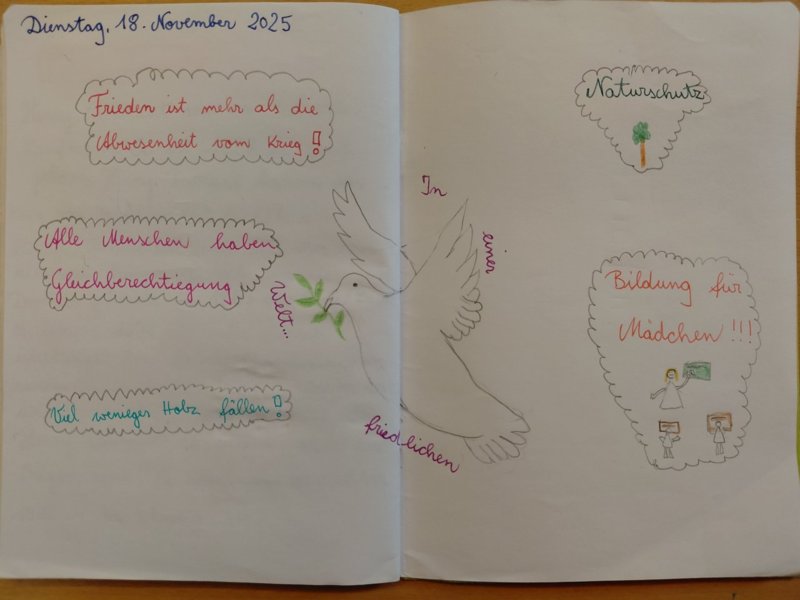 Dienstag, 18. November 2025
Frieden ist mehr als die
Abwesenheit vom Krieg!
Alle Menschen haben
Gleichberechtiegung
Viel wenieger Holz fällen!
In
einer
friedlichen
Welt...
Naturschutz
Bildung für
Mädchen!!!